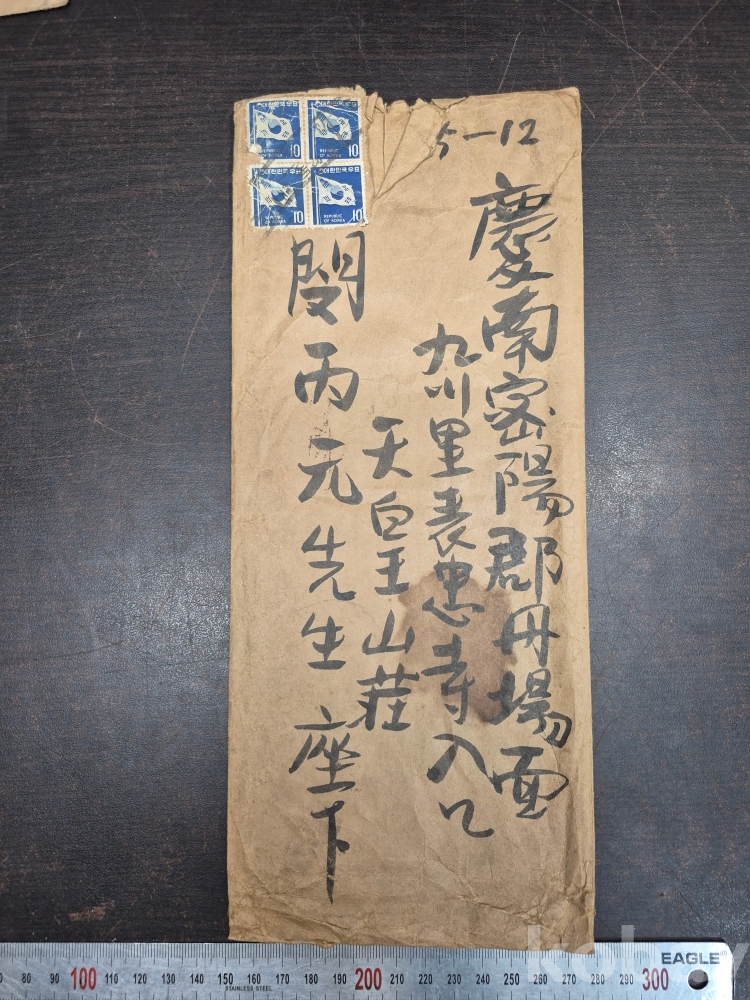 5-12
慶南密陽郡丹場面
九川里表忠寺入口
天皇山莊
閔丙元先生 座下
대한민국우표
10
REPUBLIC
OF KOREA
대한민국우표
10
REPUBLIC
OF KOREA
대한민국우표
10
REPUBLIC
OF KOREA
대한민국우표
10
REPUBLIC
OF KOREA
80 90 100 110 120 130 140 150 160 170 180 190 200 210 220 230 240 250 260 270 280 290 300
STAINLESS STEEL
EAGLE